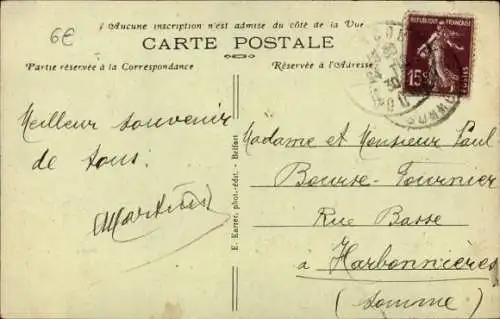 6€
Aucune inscription n'est admise du côté de la Vue
CARTE POSTALE
Partie réservée à la Correspondance
Réservée à l'Adresse
REPUBLIQUE FRANÇAISE
15c
POSTES
Meilleur souvenir
de tous.
E. Karrer, phot.-édit. - Belfort
Madame et Monsieur Paul
Bourse-Fournier
Rue Basse
à Harbonnières
(Somme)